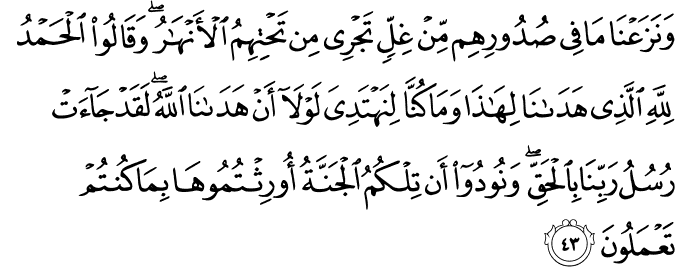 وَنَزَعْنَا مَا فِى صُدُورِهِم مِّنْ غِلٍّ تَجْرِى مِن تَحْتِهِمُ ٱلْأَنْهَـٰرُ ۖ وَقَالُوا۟ ٱلْحَمْدُ
لِلَّهِ ٱلَّذِى هَدَىٰنَا لِهَـٰذَا وَمَا كُنَّا لِنَهْتَدِىَ لَوْلَآ أَنْ هَدَىٰنَا ٱللَّهُ ۖ لَقَدْ جَآءَتْ
رُسُلُ رَبِّنَا بِٱلْحَقِّ ۖ وَنُودُوٓا۟ أَن تِلْكُمُ ٱلْجَنَّةُ أُورِثْتُمُوهَا بِمَا كُنتُمْ
تَعْمَلُونَ ٤٣